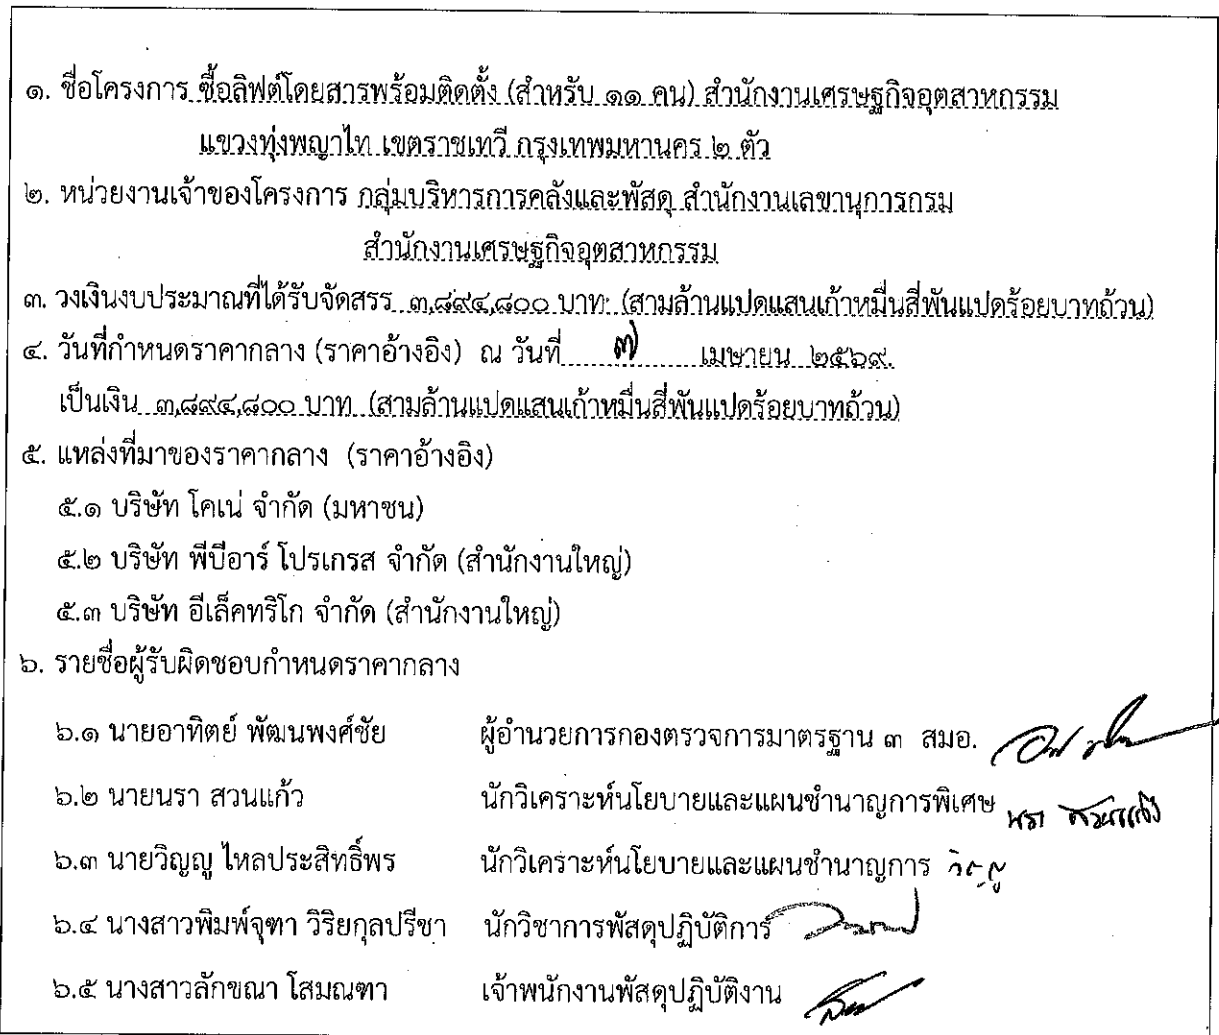 ๑. ชื่อโครงการ ซื้อลิฟต์โดยสารพร้อมติดตั้ง (สำหรับ ๑๑ คน) สำนักงานเศรษฐกิจอุตสาหกรรม
แขวงทุ่งพญาไท เขตราชเทวี กรุงเทพมหานคร ๒ ตัว
๒. หน่วยงานเจ้าของโครงการ กลุ่มบริหารการคลังและพัสดุ สำนักงานเลขานุการกรม
สำนักงานเศรษฐกิจอุตสาหกรรม
๓. วงเงินงบประมาณที่ได้รับจัดสรร ๓,๘๙๔,๘๐๐ บาท (สามล้านแปดแสนเก้าหมื่นสี่พันแปดร้อยบาทถ้วน)
๔. วันที่กำหนดราคากลาง (ราคาอ้างอิง) ณ วันที่ ๗ เมษายน ๒๕๖๙
เป็นเงิน ๓,๘๙๔,๘๐๐ บาท (สามล้านแปดแสนเก้าหมื่นสี่พันแปดร้อยบาทถ้วน)
๕. แหล่งที่มาของราคากลาง (ราคาอ้างอิง)
๕.๑ บริษัท โคเน่ จำกัด (มหาชน)
๕.๒ บริษัท พีบีอาร์ โปรเกรส จำกัด (สำนักงานใหญ่)
๕.๓ บริษัท อีเล็คทริโก จำกัด (สำนักงานใหญ่)
๖. รายชื่อผู้รับผิดชอบกำหนดราคากลาง
๖.๑ นายอาทิตย์ พัฒนพงศ์ชัย ผู้อำนวยการกองตรวจการมาตรฐาน ๓ สมอ.
๖.๒ นายนรา สวนแก้ว นักวิเคราะห์นโยบายและแผนชำนาญการพิเศษ นรา สวนแก้ว
๖.๓ นายวิญญู ไหลประสิทธิ์พร นักวิเคราะห์นโยบายและแผนชำนาญการ วิญญู
๖.๔ นางสาวพิมพ์จุฑา วิริยกุลปรีชา นักวิชาการพัสดุปฏิบัติการ
๖.๕ นางสาวลักขณา โสมณฑา เจ้าพนักงานพัสดุปฏิบัติงาน